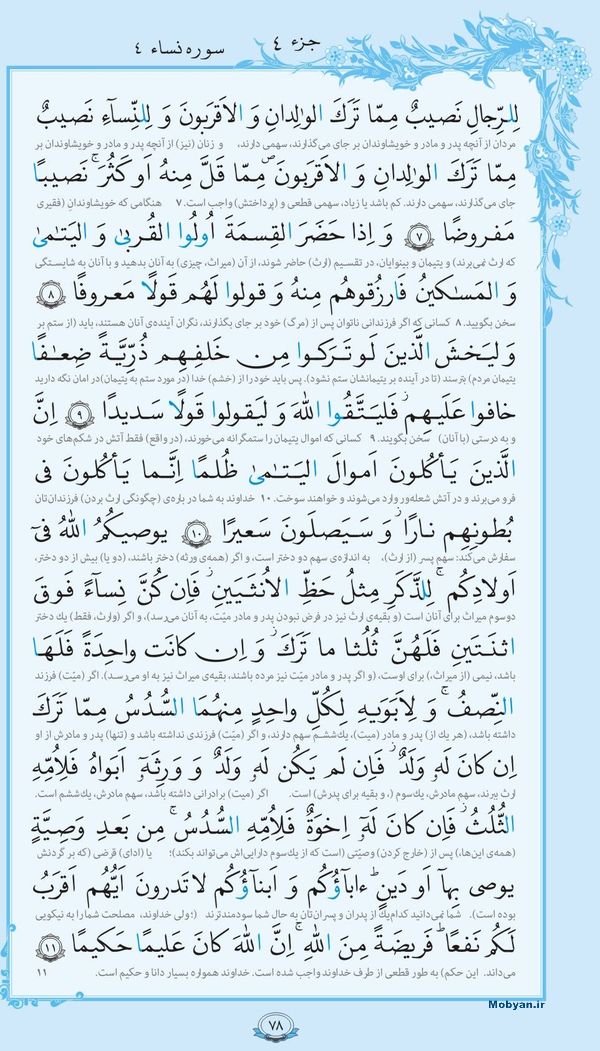 جزء ٤
سوره نساء ٤
لِلرِّجالِ نَصيبٌ مِمّا تَرَكَ الوالِدانِ وَ الاَقرَبونَ وَ لِلنِّساءِ نَصيبٌ
مردان از آنچه پدر و مادر و خویشاوندان بر جای می‌گذارند، سهمی دارند، و زنان (نیز) از آنچه پدر و مادر و خویشاوندان بر
مِمّا تَرَكَ الوالِدانِ وَ الاَقرَبونَ مِمّا قَلَّ مِنهُ اَو كَثُرَ ۚ نَصيبًا
جای می‌گذارند، سهمی دارند. کم باشد یا زیاد، سهمی قطعی و (پرداختش) واجب است. ۷ هنگامی که خویشاوندانِ (فقیری
مَفروضًا ٧ وَ اِذا حَضَرَ القِسمَةَ اُولُوا القُربىٰ وَ اليَتامىٰ
که ارث نمی‌برند) و یتیمان و بینوایان، در تقسیم (ارث) حاضر شوند، از آن (میراث، چیزی) به آنان بدهید و با آنان به شایستگی
وَ المَساكينُ فَارزُقوهُم مِنهُ وَ قولوا لَهُم قَولًا مَعروفًا ٨
سخن بگویید. ۸ کسانی که اگر فرزندانی ناتوان پس از (مرگ) خود بر جای بگذارند، نگران آینده‌ی آنان هستند، باید (از ستم بر
وَ ليَخشَ الَّذينَ لَو تَرَكوا مِن خَلفِهِم ذُرِّيَّةً ضِعافًا
یتیمان مردم) بترسند (تا در آینده بر یتیمانشان ستم نشود). پس باید خود را از (خشم) خدا (در مورد ستم به یتیمان) در امان نگه دارید
خافوا عَلَيهِم فَليَتَّقُوا اللهَ وَ ليَقولوا قَولًا سَديدًا ٩ اِنَّ
و به درستی (با آنان) سخن بگویند. ۹ کسانی که اموال یتیمان را ستمگرانه می‌خورند، (در واقع) فقط آتش در شکم‌های خود
الَّذينَ يَأكُلونَ اَموالَ اليَتامىٰ ظُلمًا اِنَّما يَأكُلونَ فى
فرو می‌برند و در آتش شعله‌ور وارد می‌شوند و خواهند سوخت. ۱۰ خداوند به شما در باره‌ی (چگونگی ارث بردن) فرزندان‌تان
بُطونِهِم نارًا ۖ وَ سَيَصلَونَ سَعيرًا ١٠ يوصيكُمُ اللهُ فى
سفارش می‌کند: سهم پسر (از ارث)، به اندازه‌ی سهم دو دختر است، و اگر (همه‌ی ورثه) دختر باشند، (دو یا) بیش از دو دختر،
اَولادِكُم ۖ لِلذَّكَرِ مِثلُ حَظِّ الاُنثَيَينِ ۚ فَاِن كُنَّ نِساءً فَوقَ
دوسوم میراث برای آنان است (و بقیه‌ی ارث نیز در فرض نبودن پدر و مادر میّت، به آنان می‌رسد)، و اگر (وارث، فقط) یک دختر
اثنَتَينِ فَلَهُنَّ ثُلُثا ما تَرَكَ ۖ وَ اِن كانَت واحِدَةً فَلَهَا
باشد، نیمی (از میراث،) برای اوست، (و اگر پدر و مادر میّت نیز مرده باشند، بقیه‌ی میراث نیز به او می‌رسد). اگر (میّت) فرزند
النِّصفُ ۚ وَ لِاَبَوَيهِ لِكُلِّ واحِدٍ مِنهُمَا السُّدُسُ مِمّا تَرَكَ
داشته باشد، (هر یک از) پدر و مادر (میت)، یک‌ششم سهم دارند، و اگر (میّت) فرزندی نداشته باشد و (تنها) پدر و مادرش از او
اِن كانَ لَهُ وَلَدٌ ۚ فَاِن لَم يَكُن لَهُ وَلَدٌ وَ وَرِثَهُ اَبَواهُ فَلِاُمِّهِ
ارث ببرند، سهم مادرش، یک‌سوم (، و بقیه برای پدرش) است. اگر (میت) برادرانی داشته باشد، سهم مادرش، یک‌ششم است.
الثُّلُثُ ۚ فَاِن كانَ لَهُ اِخوَةٌ فَلِاُمِّهِ السُّدُسُ ۚ مِن بَعدِ وَصِيَّةٍ
(همه‌ی این‌ها،) پس از (خارج کردن) وصیّتی (است که از یک‌سوم دارایی‌اش می‌تواند بکند)؛ یا (ادای) قرضی (که بر گردنش
يوصى بِها اَو دَينٍ ۗ ءاباؤُكُم وَ اَبناؤُكُم لا تَدرونَ اَيُّهُم اَقرَبُ
بوده است). شما نمی‌دانید کدام‌یک از پدران و پسران‌تان به حال شما سودمندترند (؛ ولی خداوند، مصلحت شما را به نیکویی
لَكُم نَفعًا ۚ فَريضَةً مِنَ اللهِ ۗ اِنَّ اللهَ كانَ عَليمًا حَكيمًا ١١
می‌داند. این حکم) به طور قطعی از طرف خداوند واجب شده است. خداوند همواره بسیار دانا و حکیم است. ۱۱
Mobyan.ir
٧٨